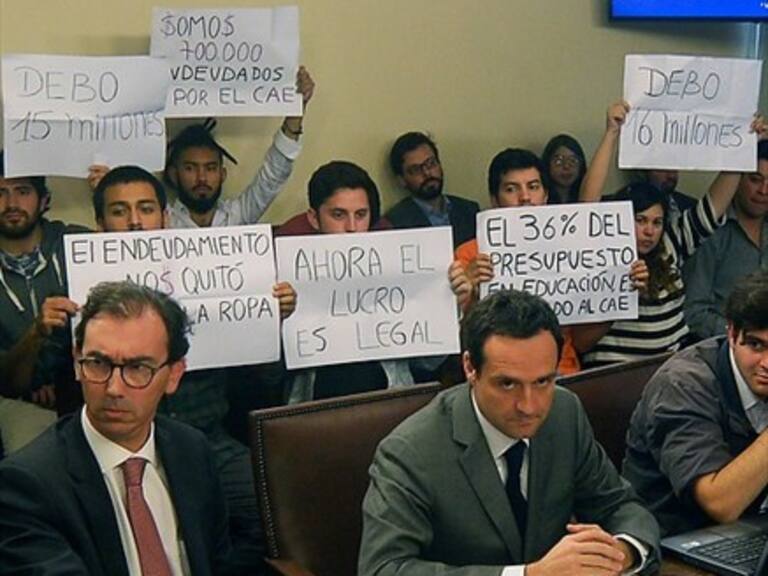 $OMO$
700.000
POR EL CAE
DEBO
15 millones
DEBO
16 millones
El ENDEUDAMIENTO
NO$ QUITÓ
LA ROPA
AHORA EL
LUCRO
ES LEGAL
EL 36% DEL
PRESUPUESTO
EN EDUCACIÓN ES
AL CAE